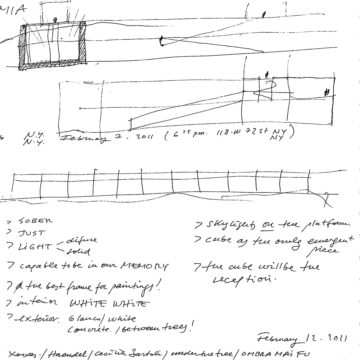 MIA
N.Y.
N.Y. February 7. 2011 ( 6 25 pm. 118-W 72 St NY
NY )
> SOBER
> JUST
> LIGHT difuse
solid
> capable to be in our MEMORY
> the best frame for paintings!
> interior WHITE WHITE
> exterior. Blanca/white
concrete. / Between trees!
> Skylights on the platform
> cube as the only emergent
piece
> the cube will be the
reception.
February 12. 2011
Xerxes / Haendel / Cecilia Bartoli / under the tree / OMBRA MAI FU